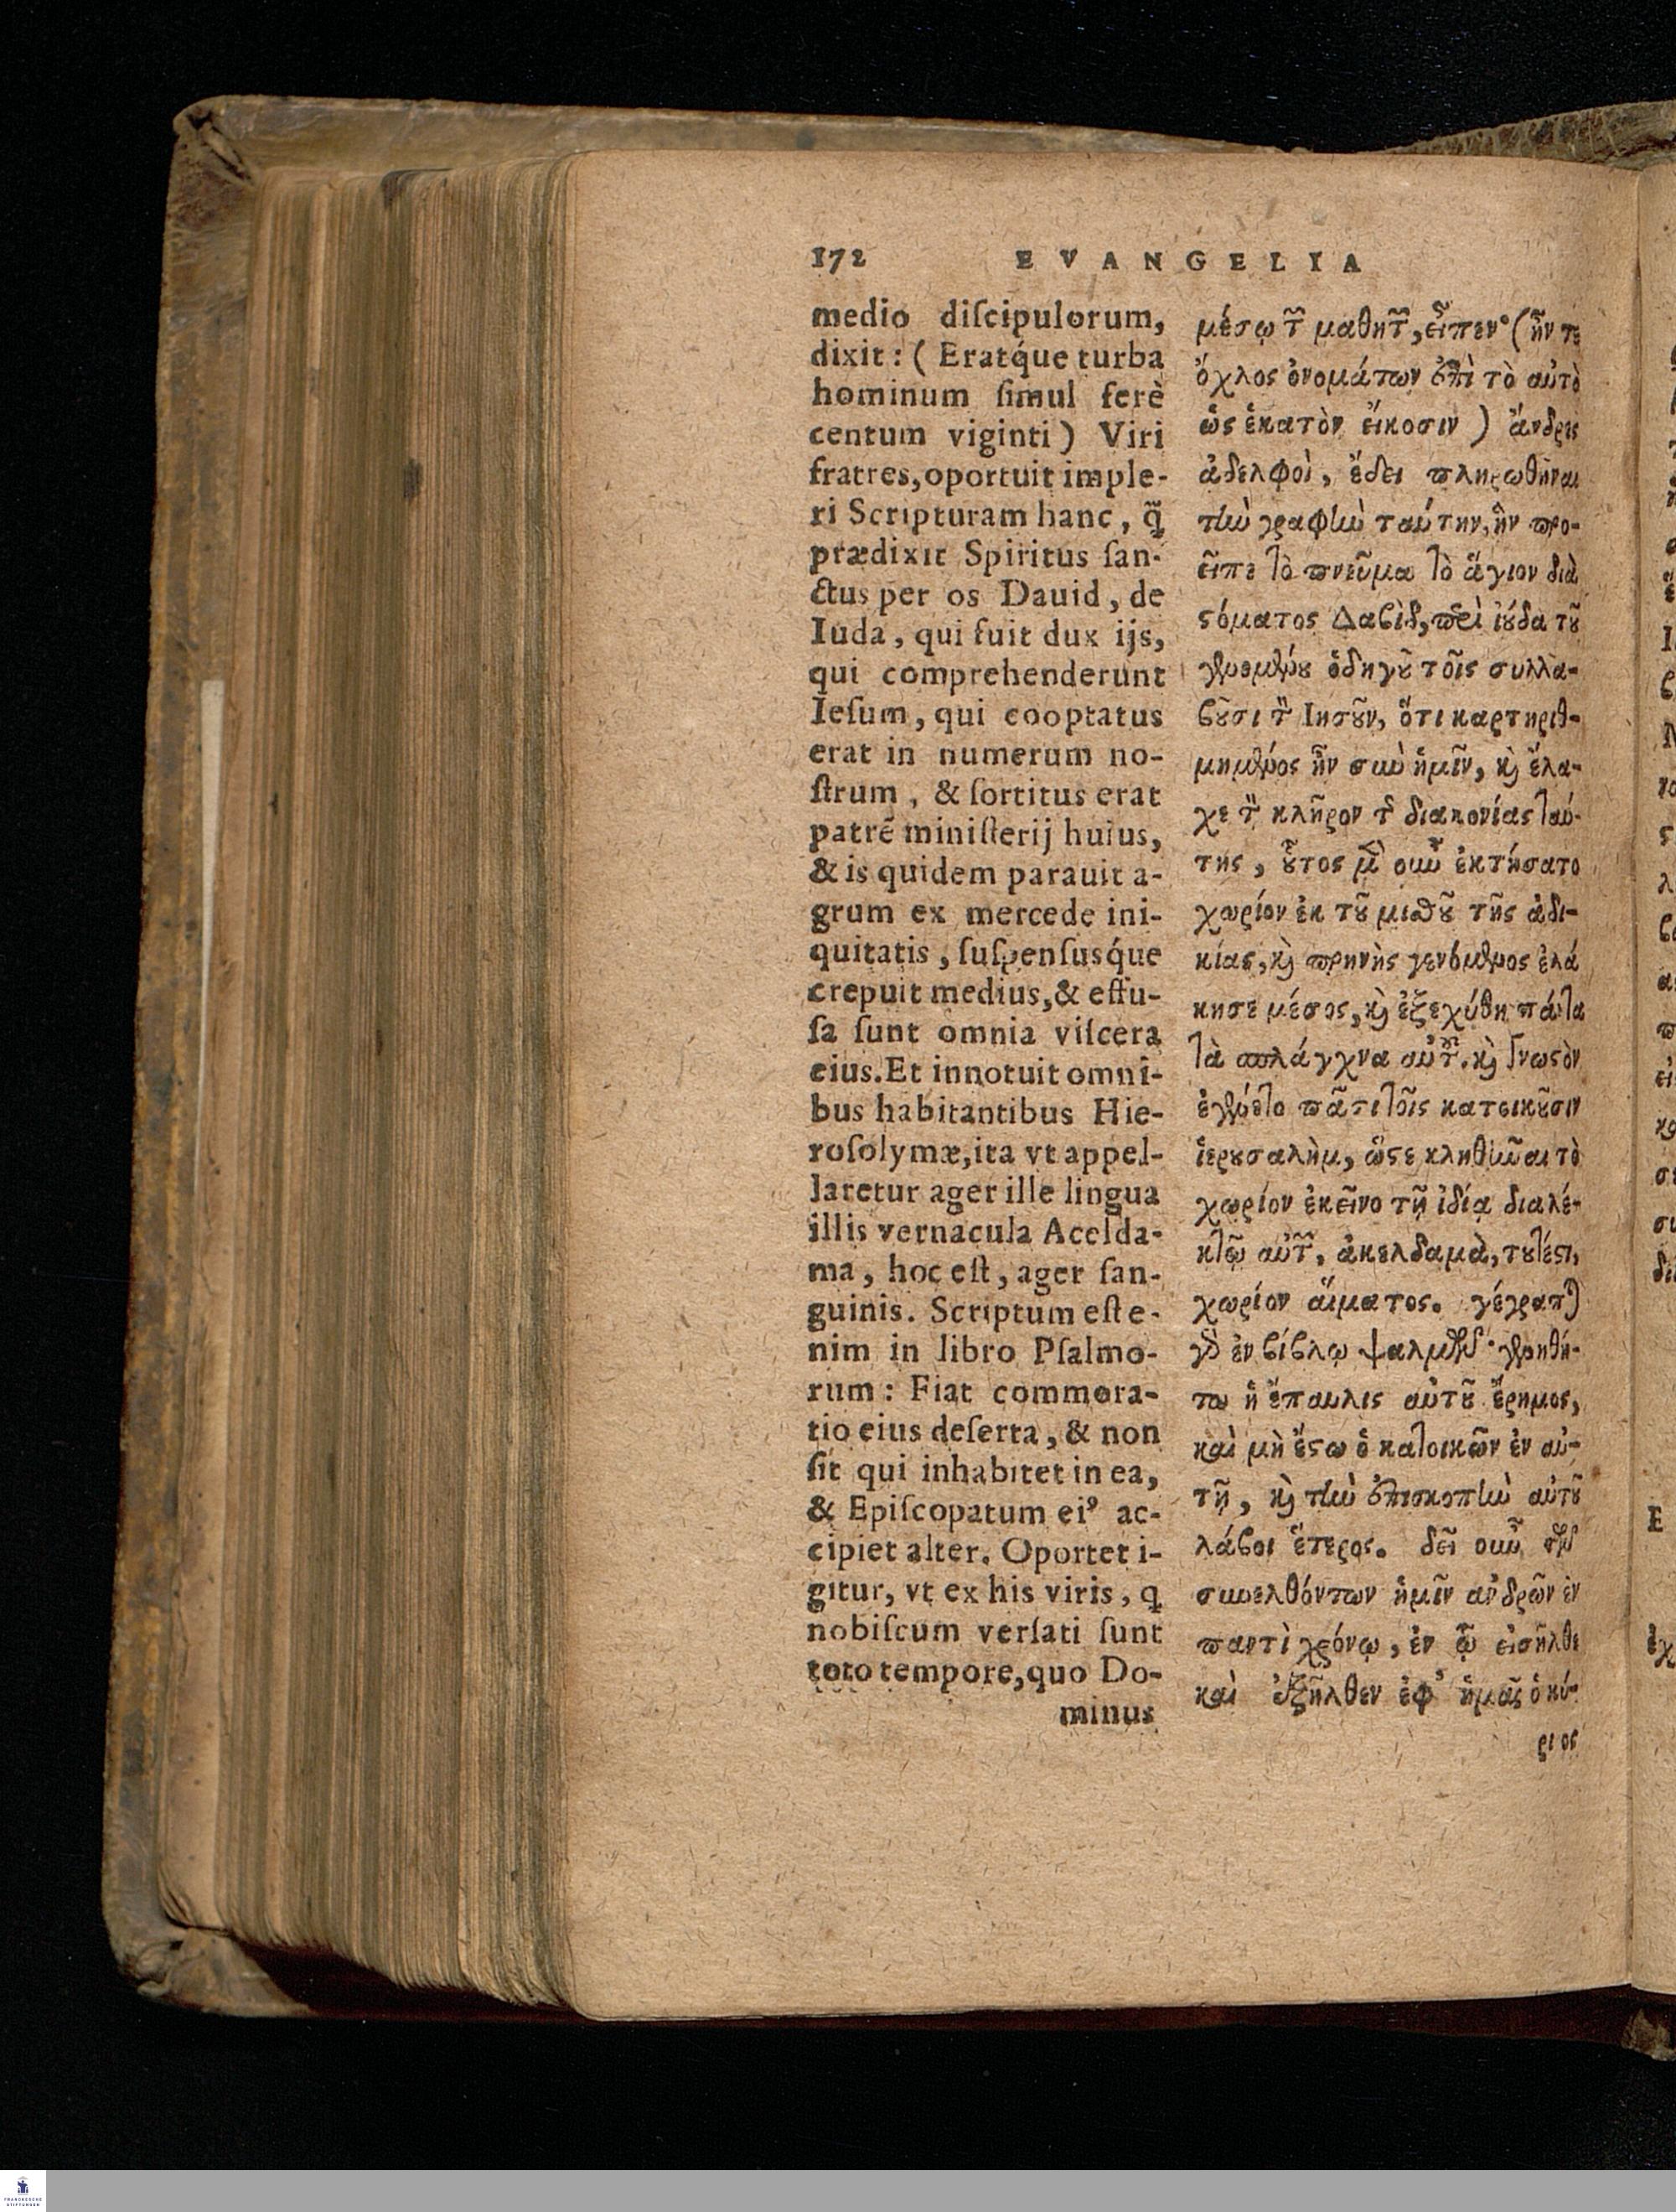 172 EVANGELIA
medio diſcipulorum,
dixit: ( Eratq́ue turba
hominum ſimul ferè
centum viginti ) Viri
fratres, oportuit imple-
ri Scripturam hanc, q̃
prædixit Spiritus ſan-
ctus per os Dauid, de
Iuda, qui fuit dux ijs,
qui comprehenderunt
Ieſum, qui cooptatus
erat in numerum no-
ſtrum, & ſortitus erat
patrẽ miniſterij huius,
& is quidem parauit a-
grum ex mercede ini-
quitatis, ſuſpenſusq́ue
crepuit medius, & effu-
ſa ſunt omnia viſcera
eius. Et innotuit omni-
bus habitantibus Hie-
roſolymæ, ita vt appel-
laretur ager ille lingua
illis vernacula Acelda-
ma, hoc eſt, ager ſan-
guinis. Scriptum eſt e-
nim in libro Pſalmo-
rum: Fiat commora-
tio eius deſerta, & non
ſit qui inhabitet in ea,
& Epiſcopatum ei⁹ ac-
cipiet alter. Oportet i-
gitur, vt ex his viris, q
nobiſcum verſati ſunt
toto tempore, quo Do-
minus
μέσῳ τ῀ μαθητ῀, εἶπεν· (ἦν τε
ὄχλος ὀνομάτων ἐπὶ τὸ αὐτὸ
ὡς ἑκατὸν εἴκοσιν ) ἄνδρες
ἀδελφοὶ, ἔδει πληρωθῆναι
τὴν γραφὴν ταύτην, ἣν προ-
εῖπε τὸ πνεῦμα τὸ ἅγιον διὰ
ϛόματος Δαβὶδ, περὶ ἰούδα τοῦ
γενομένου ὁδηγοῦ τοῖς συλλα-
βοῦσι τ῀ Ιησοῦν, ὅτι καρτηριθ-
μημένος ἦν σὺν ἡμῖν, καὶ ἔλα-
χε τ῀ κλῆρον τ῀ διακονίας ταύ-
της, οὗτος μ῀ οὖν ἐκτήσατο
χωρίον ἐκ τοῦ μισθοῦ τῆς ἀδι-
κίας, καὶ πρηνὴς γενόμενος ἐλά
κησε μέσος, καὶ ἐξεχύθη πάντα
τὰ σπλάγχνα αὐτ῀. καὶ γνωϛὸν
ἐγένετο πᾶσι τοῖς κατοικοῦσιν
ἱερουσαλὴμ, ὥϛε κληθῆναι τὸ
χωρίον ἐκεῖνο τῇ ἰδίᾳ διαλέ-
κτῳ αὐτ῀, ἀκελδαμὰ, τουτέϛι,
χωρίον αἵματος. γέγραπται
γὸ ἐν βίβλῳ ψαλμῶν· γενηθή-
τω ἡ ἔπαυλις αὐτοῦ ἔρημος,
καὶ μὴ ἔϛω ὁ κατοικῶν ἐν αὐ-
τῇ, καὶ τὴν ἐπισκοπὴν αὐτοῦ
λάβοι ἕτερος. δεῖ οὖν τῶν
συνελθόντων ἡμῖν ἀνδρῶν ἐν
παντὶ χρόνῳ, ἐν ᾧ εἰσῆλθε
καὶ ἐξῆλθεν ἐφ᾽ ἡμᾶς ὁ κύ-
ριος
FRANCKESCHE
STIFTUNGEN